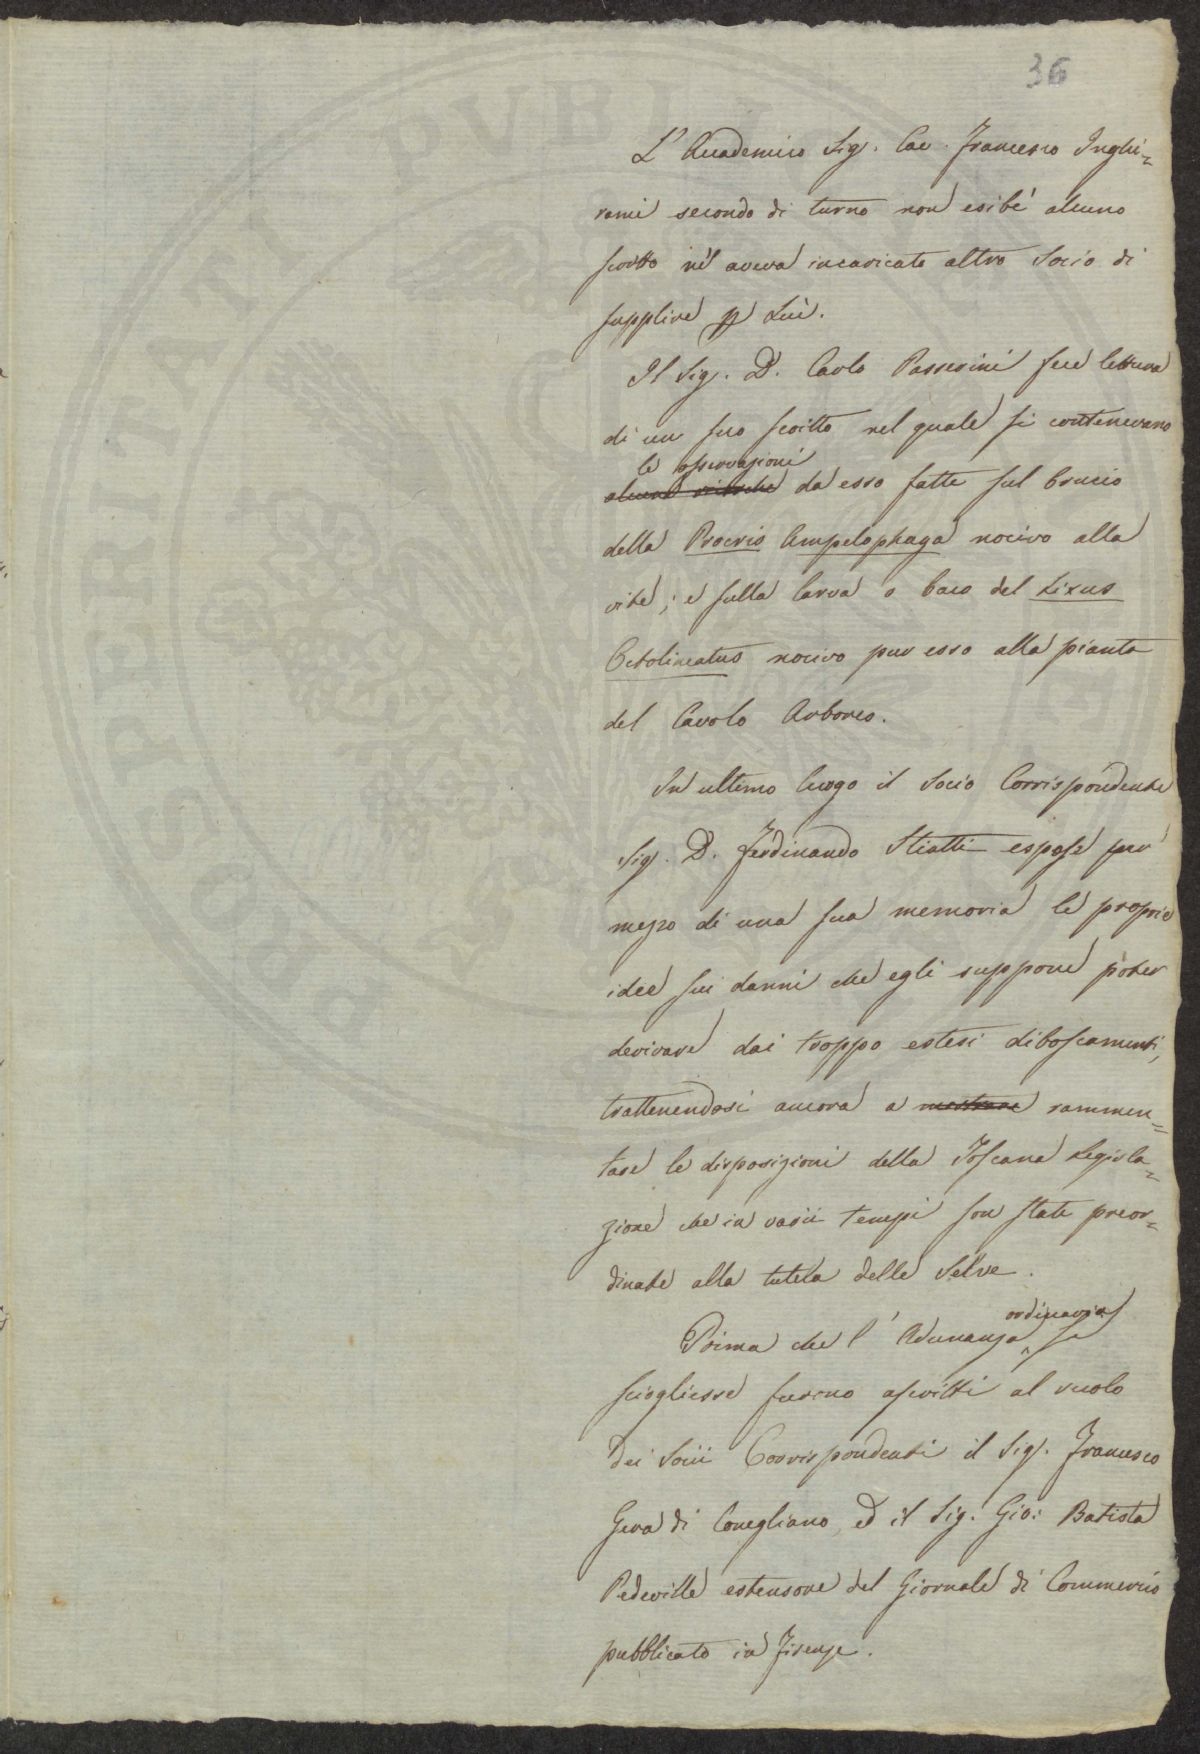 36
L' Accademico Sig. Cav. Francesco Inghi=
rami secondo di turno non esibé alcuno
scritto né aveva incaricato altro Socio di
supplire p Lui.
Il Sig. D. Carlo Passerini fece lettura
di un suo scritto nel quale si contenevano
le osservazioni
alcune ricerche da esso fatte sul bruco
della Procris Ampelophaga nocivo alla
vite; e sulla larva o baco del Lixus
Octolineatus nocivo pur esso alla pianta
del Cavolo Arboreo.
In ultimo luogo il Socio Corrispondente
Sig. D. Ferdinando Stiatti espose per
mezzo di una sua memoria le proprie
idee sui danni che egli suppone poter
derivare dai troppo estesi diboscamenti,
trattenendosi ancora a mostrare rammen=
tare le disposizioni della Toscana Legisla=
zione che in varii tempi son state preor=
dinate alla tutela delle Selve.
ordinaria
Prima che l' Adunanza si
sciogliesse furono ascritti al ruolo
dei Socii Corrispondenti il Sig. Francesco
Gera di Conegliano, ed il Sig. Gio: Batista
Pedeville estensore del Giornale di Commercio
pubblicato in Firenze.